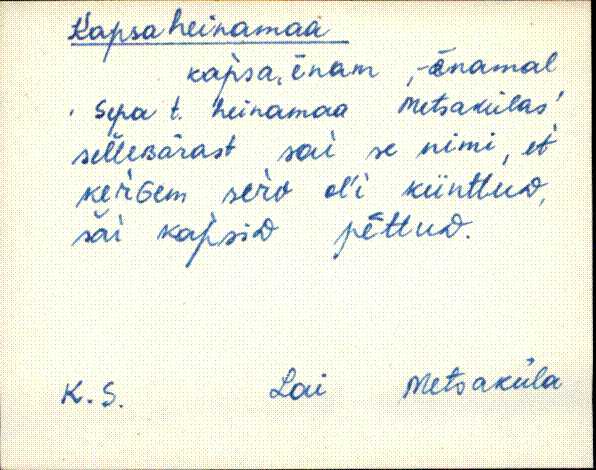 Kapsaheinamaa
kapsa, ēnam, -ēnamal
Sepa t. heinamaa Metsakülas'
selleʙärast sai se nimi, et
kerGem serv ol'i künttud,
säi kapsiD pēttuD.
K. S. Lai Metsaküla